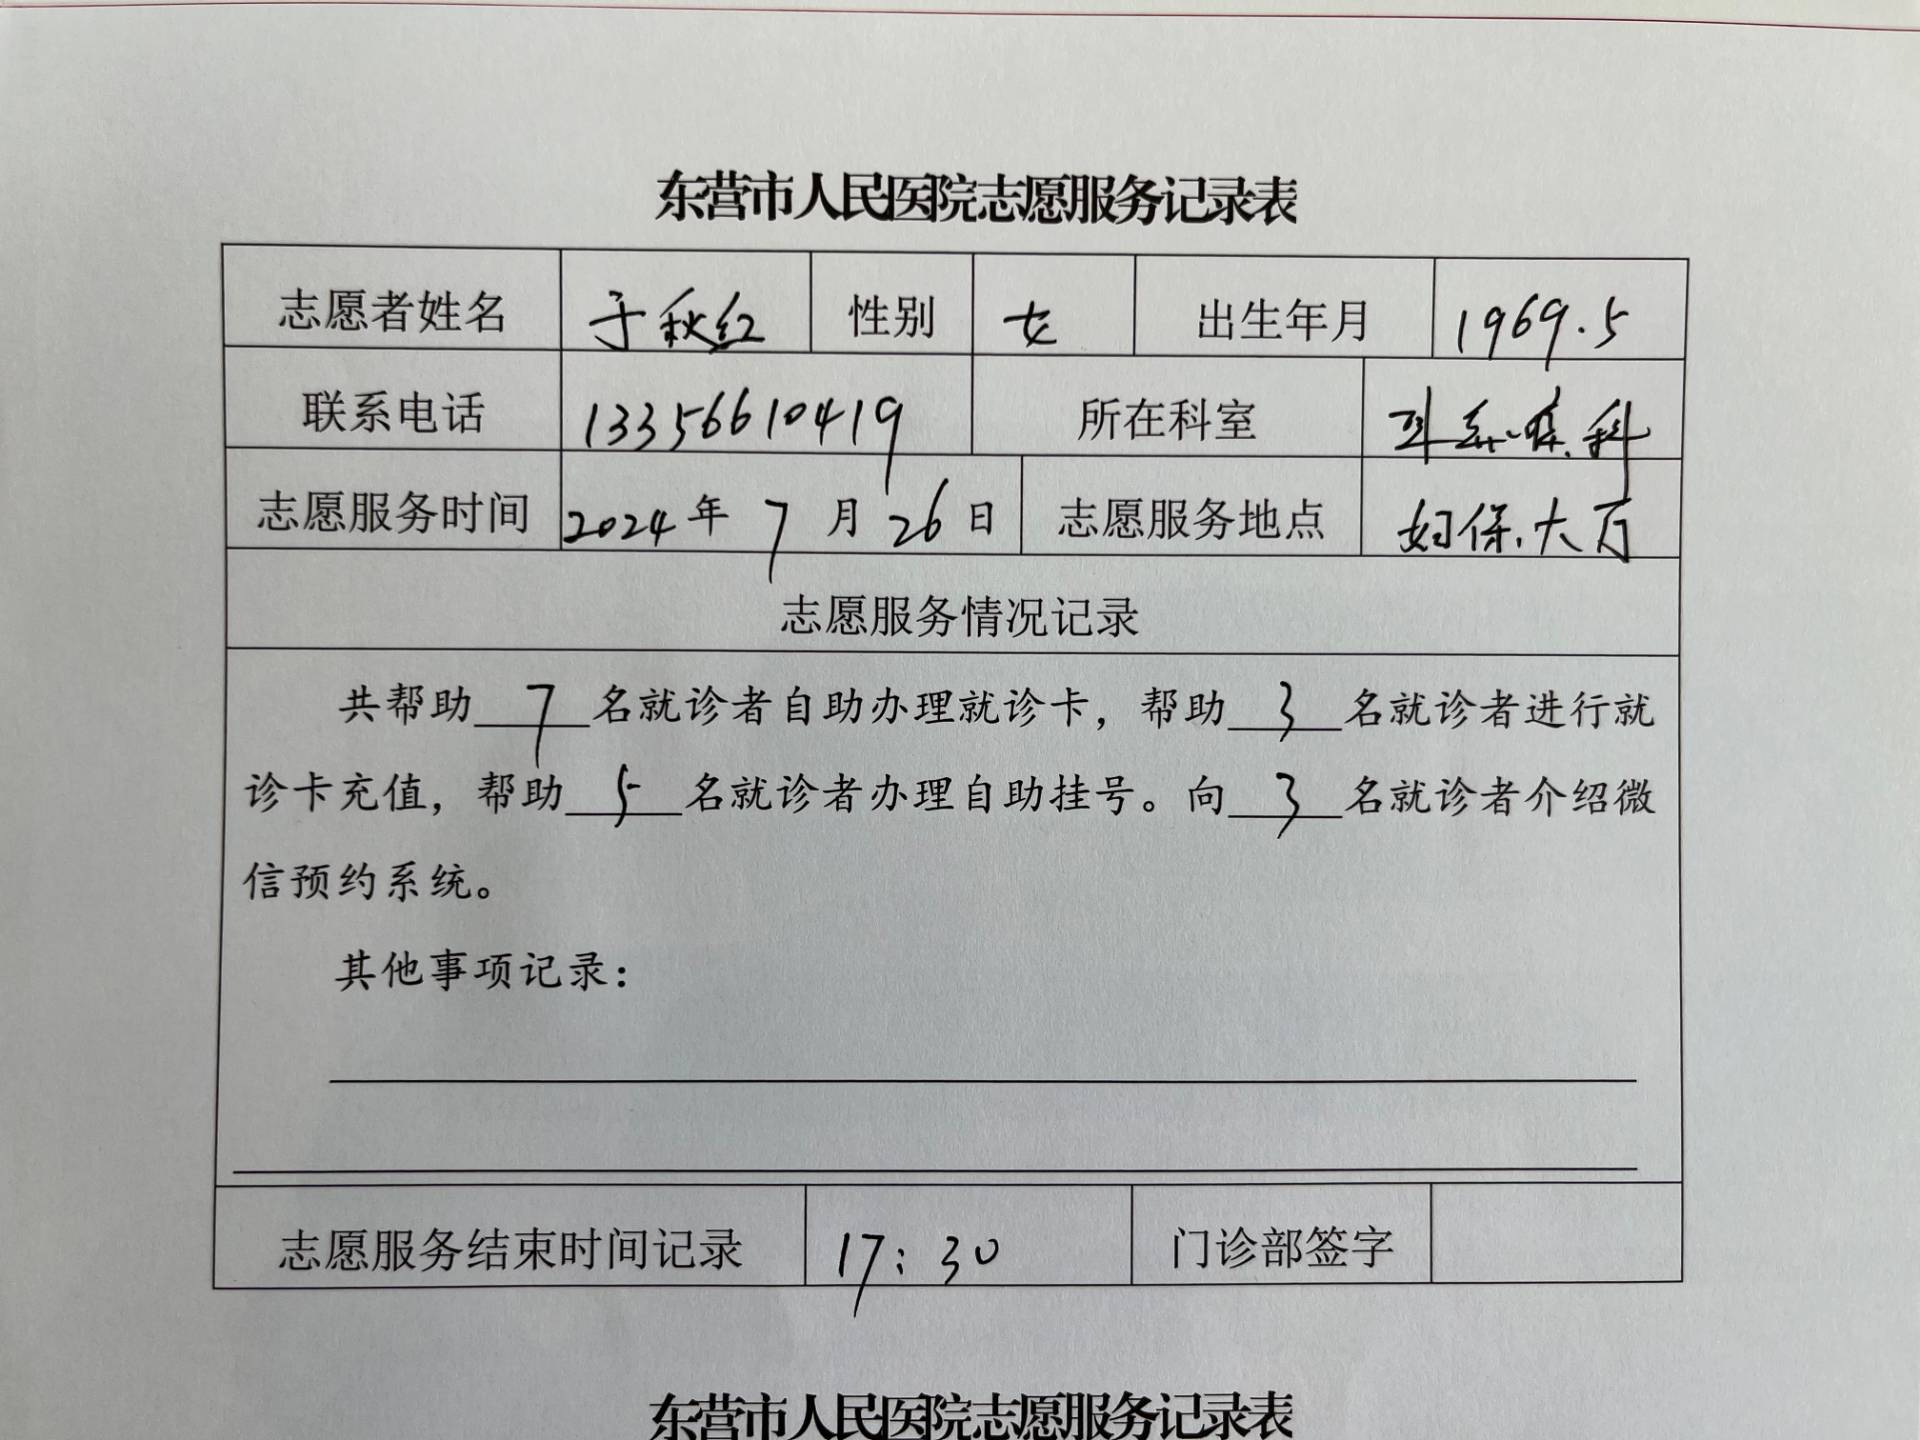 东营市人民医院志愿服务记录表
志愿者姓名 于秋红 性别 女 出生年月 1969.5
联系电话 13356610419 所在科室 科
志愿服务时间 2024年 7 月 26 日 志愿服务地点 妇保大厅
志愿服务情况记录
共帮助 7 名就诊者自助办理就诊卡，帮助 3 名就诊者进行就
诊卡充值，帮助 5 名就诊者办理自助挂号。向 3 名就诊者介绍微
信预约系统。
其他事项记录：
志愿服务结束时间记录 17：30 门诊部签字
东营市人民医院志愿服务记录表